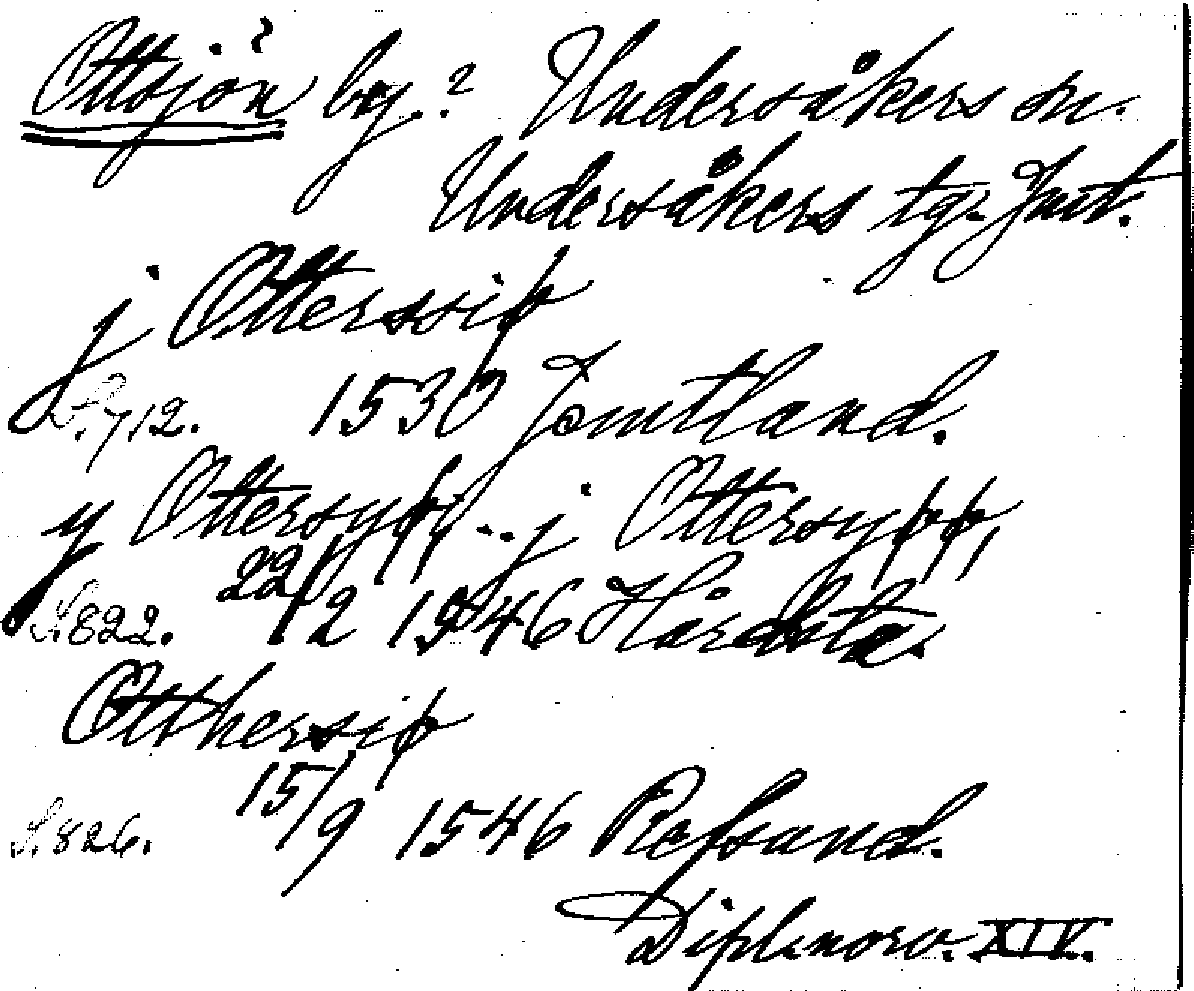 Ottsjön? by.? Undersåkers sn.
Undersåkers tg. Jmt.
j Otterssiø
S. 712. 1530 Jämtland.
y Ottersyøø,.. j Ottersyøø,
S. 822. 22/2 1546 Hårdsta.
Otthersiø
S. 826. 15/9 1546 Refsund.
Dipl. norv. XIV.